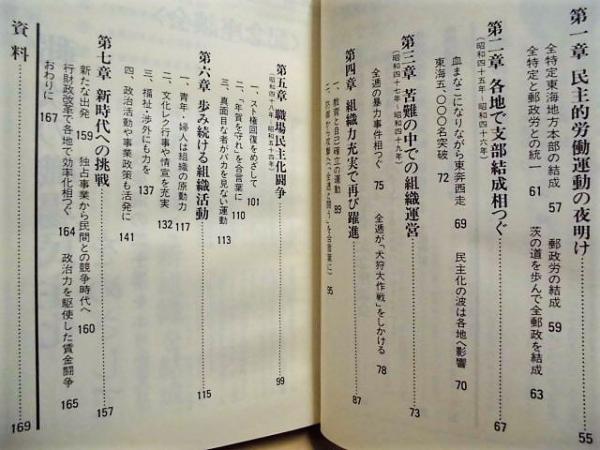 第一章 民主的労働運動の夜明け 55
全特定東海地方本部の結成 57 郵政労の結成 59
全特定と郵政労との統一 61 茨の道を歩んで全郵政を結成 63
第二章 各地で支部結成相つぐ 67
(昭和四十五年~昭和四十六年)
血まなこになりながら東奔西走 69 民主化の波は各地へ影響 70
東海五、〇〇〇名突破 72
第三章 苦難の中での組織運営 73
(昭和四十七年~昭和四十九年)
全逓の暴力事件相つぐ 75 全逓が「犬狩り大作戦」をしかける 78
第四章 組織力充実で再び躍進 87
一、教育と自己確立の運動 89
「全逓と闘う」を合言葉に 95
第五章 職場民主化闘争 99
(昭和四十八年~昭和五十四年)
一、スト権回復をめざして 101
二、「年賀を守れ」を合言葉に 110
三、真面目な者がバカを見ない運動 113
第六章 歩み続ける組織活動 115
一、青年・婦人は組織の原動力 117
二、文化レク行事や情宣を充実 132
三、福祉・渉外にも力を 137
四、政治活動や事業政策も活発に 141
第七章 新時代への挑戦 157
新たな出発 159 独占事業から民間との競争時代へ 160
行財政改革で各地で効率化相つぐ 164 政治力を駆使した賃金闘争 165
おわりに 167
資料 169